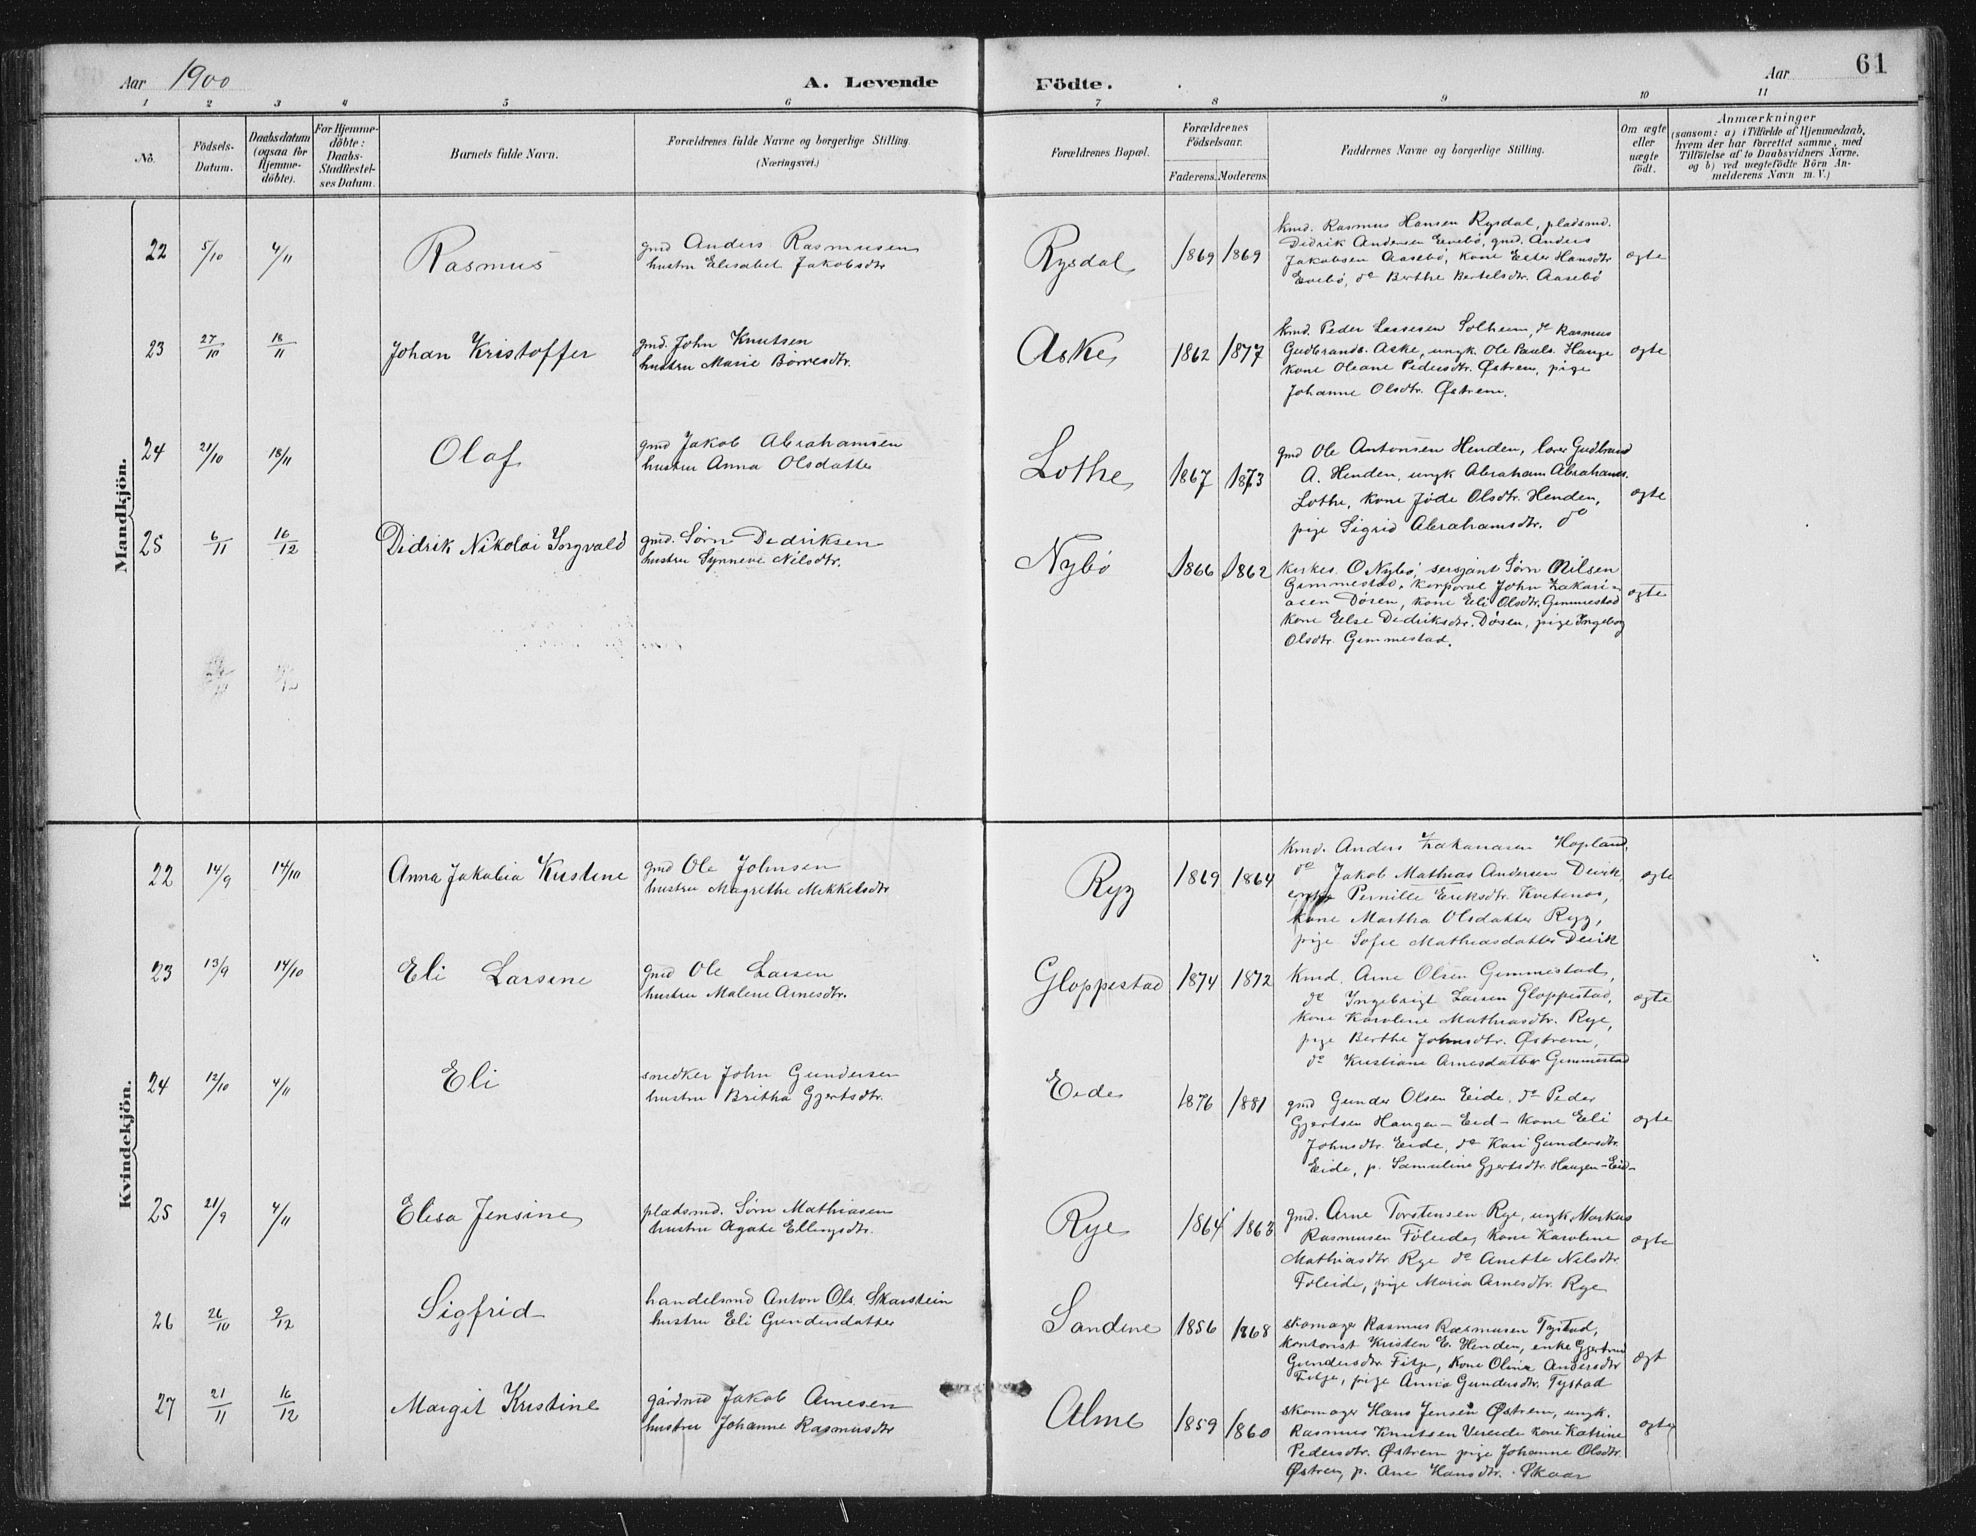 Aar 1900 A. Levende Födte. Aar 61
1 2 3 4 5 6 7 8 9 10 11
No.
Födsels-Datum.
Daabsdatum (ogsaa for Hjemme-döbte).
For Hjemme-döbte: Daabs-Stadfæstel-ses Datum.
Barnets fulde Navn.
Forældrenes fulde Navne og borgerlige Stilling. (Næringsvei.)
Forældrenes Bopæl.
Forældrenes Födselsaar.
Faderens. Moderens.
Faddernes Navne og borgerlige Stilling.
Om ægte eller uægte födt.
Anmærkninger
(saasom: a) i Tilfælde af Hjemmedaab,
hvem der har forrettet samme, med
Tilföielse af to Daabsvidners Navne,
og b) ved uægtefödte Börn An-
melderens Navn m. V.)
Mandkjön.
22 5/10 4/11 Rasmus
gmd Anders Rasmusen
hustru Elisabet Jakobsdtr
Rysdal 1869 1869
kmd. Rasmus Hansen Rysdal, pladsmd.
Didrik Andersen Evebø, gmd. Anders
Jakobsen Aasebø, kone Ester Hansdtr
Evebø, do Berthe Bertelsdtr. Aasebø
ægte
23 27/10 18/11 Johan Kristoffer
gmd. John Knutsen
hustru Marie Börresdtr.
Aske 1862 1877
kmd. Peder Lassesen Solheim, do Rasmus
Gudbrands. Aske, ungk. Ole Pauls. Hauge
kone Oleane Pedersdtr. Østrem, pige
Johanne Olsdtr. Østrem.
ægte
24 21/10 18/11 Olaf
gmd Jakob Abrahamsen
hustru Anna Olsdatter
Lothe 1867 1873
gmd Ole Antonsen Henden, lærer Gudbrand
A. Henden, ungk Abraham Abrahams.
Lothe, kone Jøde Olsdtr. Henden,
pige Sigrid Abrahamsdtr. do
ægte
25 6/11 16/12 Didrik Nikolai Torgvald
gmd. Sørn Dedriksen
hustru Synneve Nilsdtr.
Nybø 1866 1862
Kirkes. O Nybø, sersjant Sørn Nilsen
Gimmestad, korporal John Zakari-
asen Døsen, kone Eli Olsdtr. Gimmestad
kone Else Dedriksdtr. Døsen, pige Ingeborg
Olsdtr. Gimmestad.
ægte
Kvindekjön.
22 14/9 14/10 Anna Jakobia Kristine
gmd Ole Johnsen
hustru Magrethe Mikkelsdtr
Ryg 1869 1864
kmd. Anders Zakariasen Hopland,
do Jakob Mathias Andersen Devik,
enke Pernille Eriksdtr. Kvitenes,
kone Martha Olsdatter Ryg,
pige Sofie Mathiasdatter Devik
ægte
23 13/9 14/10 Eli Larsine
gmd Ole Larsen
hustru Malene Arnesdtr.
Gloppestad 1874 1872
Kmd. Arne Olsen Gimmestad,
do Ingebrigt Larsen Gloppestad,
kone Karoline Mathiasdtr. Rye,
pige Berthe Johnsdtr. Østrem,
do Kristiane Arnesdatter Gimmestad
ægte
24 12/10 4/11 Eli
snedker John Gundersen
hustru Britha Gjertsdtr.
Eide 1876 1881
gmd Gunder Olsen Eide, do Peder
Gjertsen Haugen - Eid - kone Eli
Johnsdtr. Eide, do Kari Gundersdtr.
Eide, p. Samuline Gjertsdtr. Haugen - Eid -
ægte
25 21/9 4/11 Elesa Jensine
pladsmd. Sørn Mathiasen
hustru Agate Ellingsdtr.
Rye 1864 1863
gmd. Arne Torstensen Rye, ungk. Markus
Rasmusen Føleide, kone Karoline
Mathiasdtr Rye do Anette Nilsdtr.
Føleide, pige Maria Arnesdtr. Rye
ægte
26 26/10 2/12 Sigfrid
handelsmd Anton Ols. Skarstein
hustru Eli Gundersdatter
Sandene 1856 1868
skomager Rasmus Rasmusen Tystad,
kontorist Kristen E. Henden, enke Gjertrud
Gundersdtr. Fitje, kone Olina Andersdtr
Fitje, pige Anna Gundersdtr. Tystad
ægt
27 21/11 16/12 Margit Kristine
gårdmd Jakob Arnesen
hustru Johanne Rasmusdtr
Alme 1859 1860
skomager Hans Jensen Østrem, ungk.
Rasmus Knutsen Vereide kone Katrine
Pedersdtr. Østrem pige Johanne Olsdtr.
Østrem, p. Ane Hansdtr. Skaar
ægte